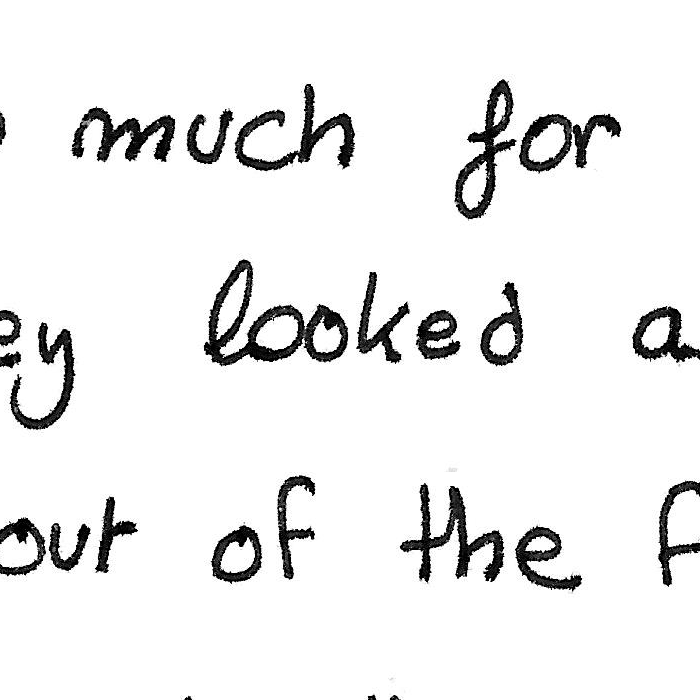 much for
looked
out of the